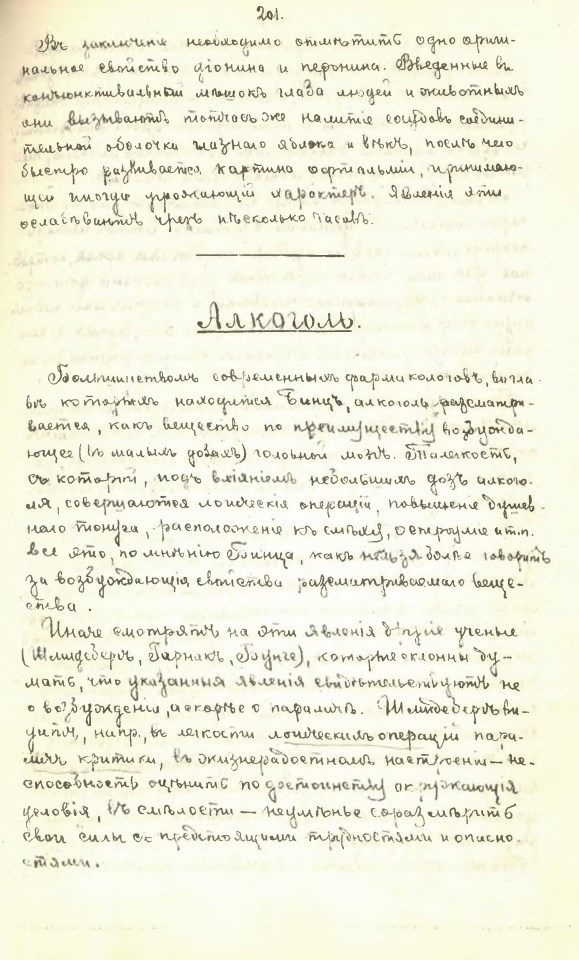 201.
Въ заключеніе необходимо отмѣтить одно ориги-
нальное свойство діонина и перонина. Введенные въ
конъюнктивальный мѣшокъ глаза людей и животныхъ
они вызываютъ тотчасъ же налитіе сосудовъ соедини-
тельной оболочки глазного яблока и вѣкъ, послѣ чего
быстро развивается картина офтальміи, принимаю-
щей иногда угрожающій характеръ. Явленія эти
ослабѣваютъ чрезъ нѣсколько часовъ.
Алкоголь.
Большинствомъ современныхъ фармакологовъ, во гла-
вѣ которыхъ находится Бинцъ, алкоголь разсматри-
вается, какъ вещество по преимуществу возбуждаю-
ющее (въ малыхъ дозахъ) головной мозгъ. Та легкость,
съ которой, подъ вліяніемъ небольшихъ дозъ алкого-
ля, совершаются логическія операціи, повышеніе душев-
наго тонуса, расположеніе къ смѣху, остроуміе и т.п.
все это, по мнѣнію Бинца, какъ нельзя болѣе говоритъ
за возбуждающія свойства разсматриваемаго веще-
ства.
Иначе смотрятъ на эти явленія другіе ученые
(Шмидебергъ, Гарнакъ, Бунге), которые склонны ду-
мать, что указанныя явленія свидѣтельствуютъ не
о возбужденіи, а скорѣе о параличѣ. Шмидебергъ ви-
дитъ, напр., въ легкости логическихъ операцій пара-
личъ критики, въ жизнерадостномъ настроеніи — не-
способность оцѣнить по достоинству окружающія
условія, въ смѣлости — неумѣнье соразмѣрить
свои силы съ предстоящими трудностями и опасно-
стями.